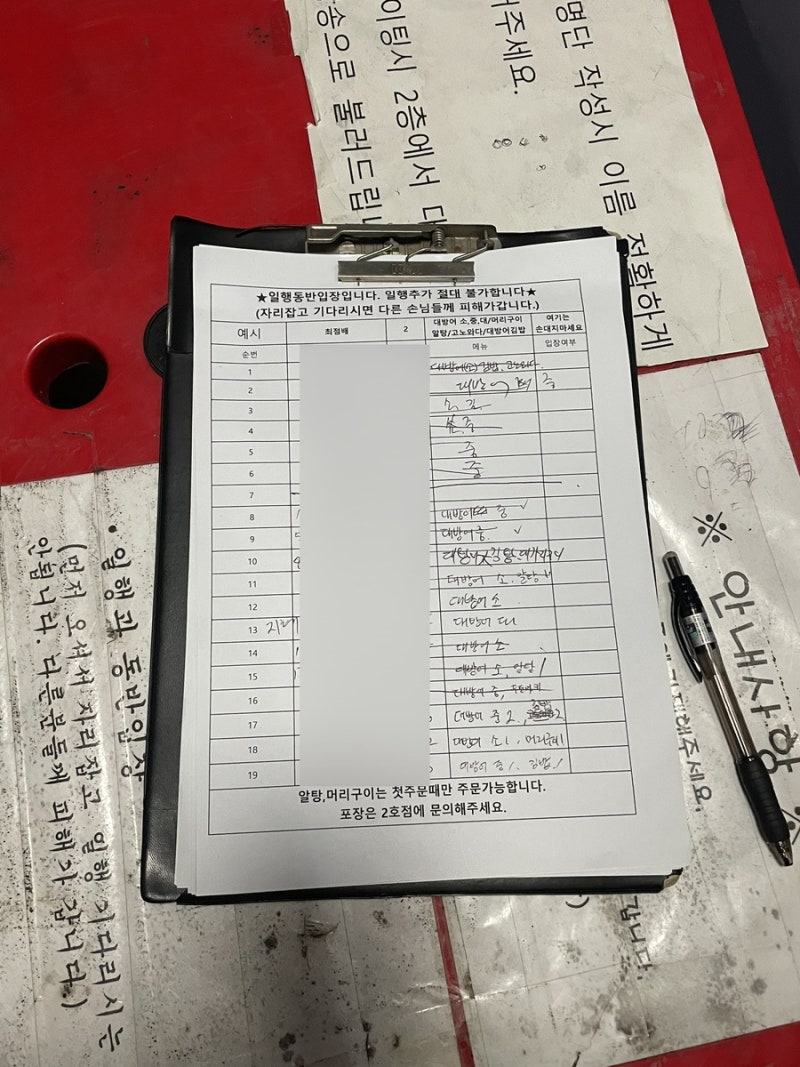 명단 작성시 이름 정확하게
해주세요.
이팅시 2층에서 대
방송으로 불러드립니
★일행동반입장입니다. 일행추가 절대 불가합니다★
(자리잡고 기다리시면 다른 손님들께 피해가갑니다.)
예시 최점배 2 대방어 소,중,대/머리구이 여기는
알탕/고노와다/대방어김밥 손대지마세요
순번 메뉴 입장여부
1 대방어(소) 김밥, 고노와다
2 대방어 중
3 소
4 중
5 중
6 중
7
8 대방어 중 ✓
9 대방어 중. ✓
10
11 대방어 소, 알탕
12 대방어 소
13 대방어
14 대방어 소
15 대방어 소, 알탕 1
16 대방어 중,
17 대방어 중 2, 2
18 대방어 소 1, 머리구이 1
19 대방어 중 1, 김밥 1
알탕,머리구이는 첫주문때만 주문가능합니다.
포장은 2호점에 문의해주세요.
• 일행과 동반입장
(먼저 오셔서 자리 잡고 일행 기다리시는
안됩니다. 다른분들께 피해가 갑니다.)
※ 안내사항 ※
해주세요.
갑니다.